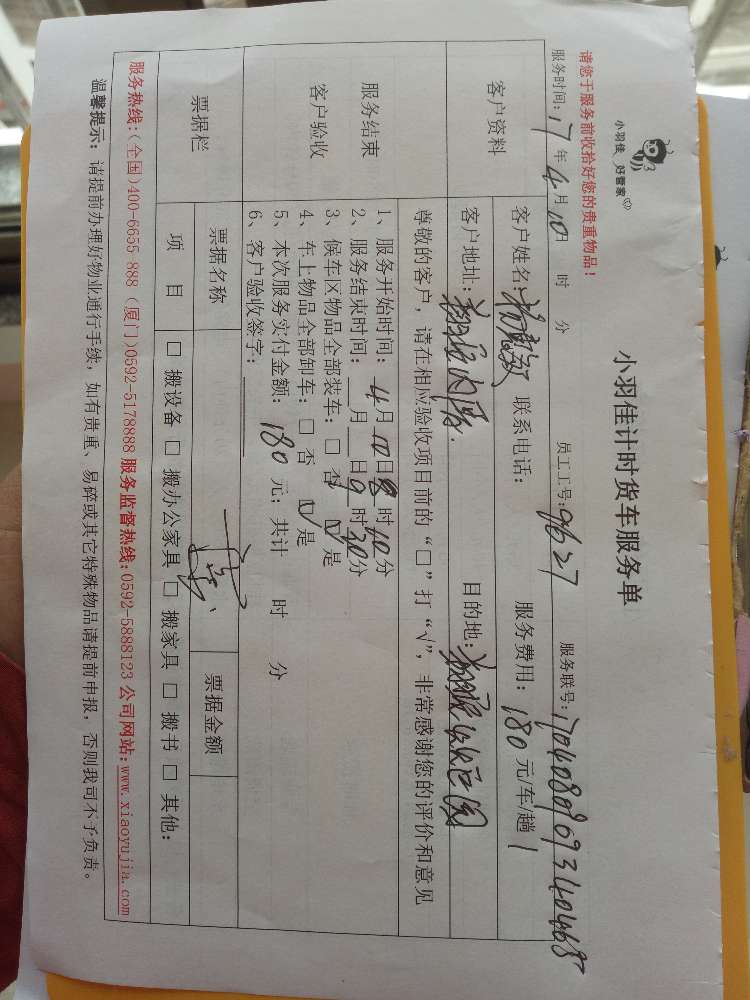 小羽佳 好管家
小羽佳计时货车服务单
请您于服务前收拾好您的贵重物品！
服务时间：17年4月10日 时 分 员工工号：9627 服务联号：
客户资料
客户姓名： 联系电话： 服务费用：180元/车/趟
客户地址： 目的地：
尊敬的客户，请在相应验收项目前的“□”打“√”，非常感谢您的评价和意见
服务结束
客户验收
1、服务开始时间：4月10日8时10分
2、服务结束时间： 月 日9时30分
3、候车区物品全部装车：□ 否 ☑ 是
4、车上物品全部卸车：□ 否 ☑ 是
5、本次服务实付金额：180元；共计 时 分
6、客户验收签字：
票据栏
票据名称 票据金额
项 目 □ 搬设备 □ 搬办公家具 □ 搬家具 □ 搬书 □ 其他：
服务热线：(全国)400-6655-888 (厦门)0592-5178888 服务监督热线：0592-5888123 公司网站：www.xiaoyujia.com
温馨提示：请提前办理好物业通行手续，如有贵重、易碎或其它特殊物品请提前申报，否则我司不予负责。